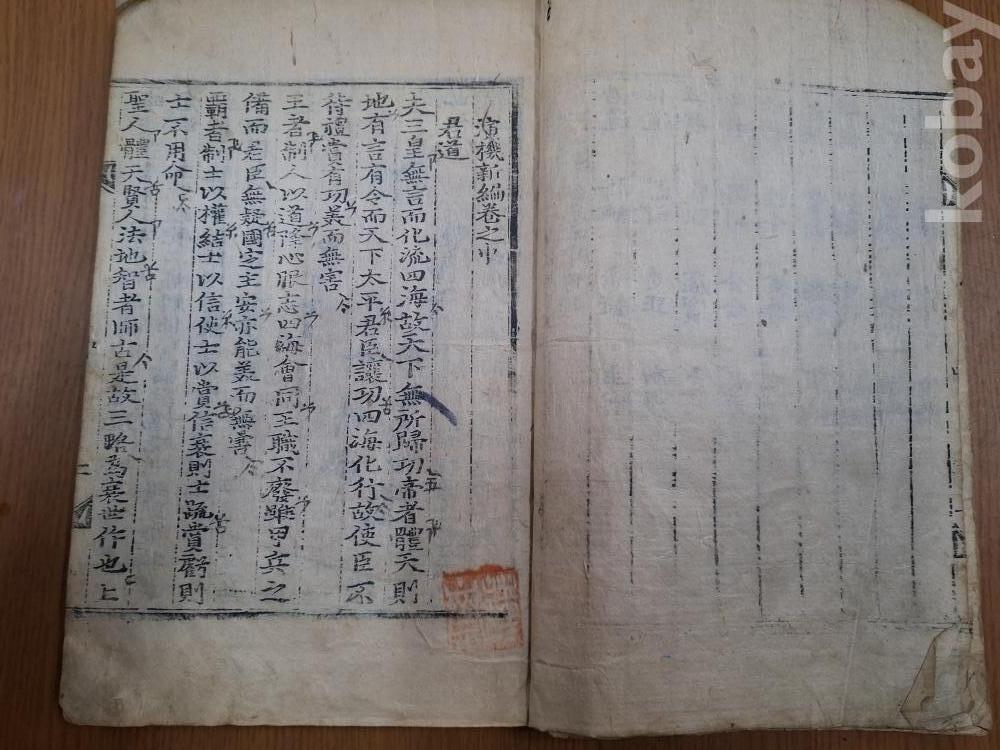 演機新編卷之中
君道
夫三皇無言而化流四海故天下無所歸功帝者體天則
地有言有令而天下太平君臣讓功四海化行故使臣不
待禮賞有功美而無害
王者制人以道降心服志四海會同王職不廢雖甲兵之
備而
君臣無疑國定主安亦能美而無害
霸者制士以權結士以信使士以賞信衰則士疏賞虧則
士不用命
聖人體天賢人法地智者師古是故三略爲衰世作也上
kobay